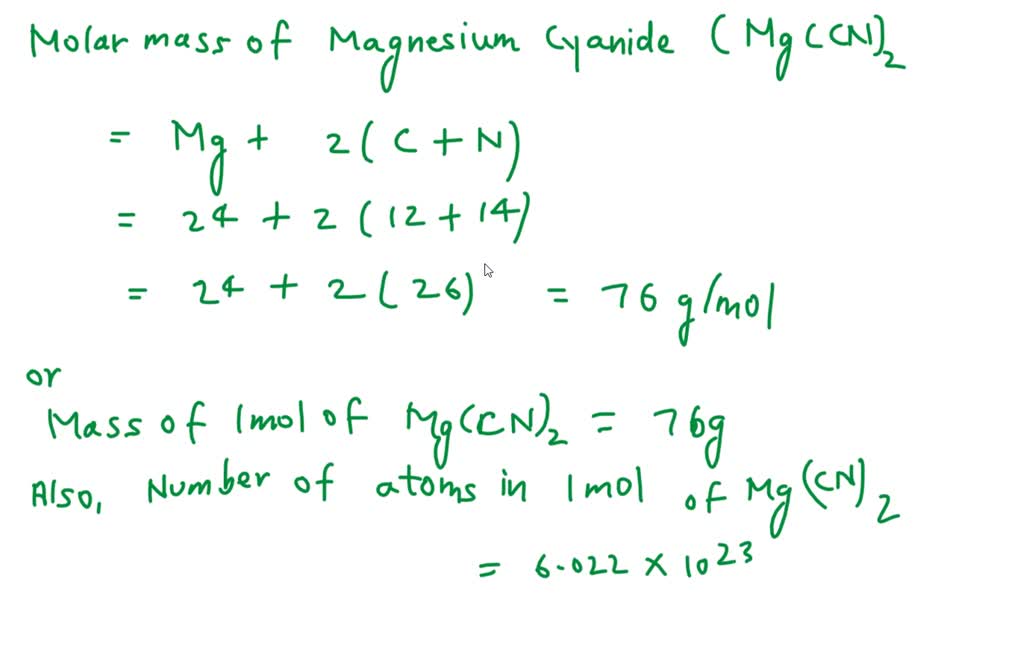 Molar mass of Magnesium Cyanide (Mg(CN)₂
= Mg + 2(C+N)
= 24 + 2(12+14)
= 24 + 2(26) = 76 g/mol
or
Mass of 1mol of Mg(CN)₂ = 76g
Also, Number of atoms in 1mol of Mg(CN)₂
= 6.022 × 10²³